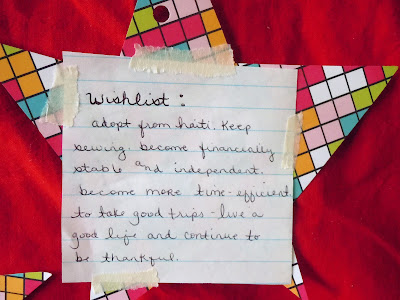 Wishlist:
adopt from haiti. Keep
sewing. become financially
stable and independent.
become more time-efficient
to take good trips - live a
good life and continue to
be thankful.